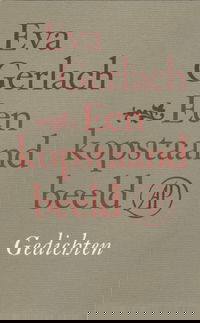 Eva
Gerlach
Een
kopstaand
beeld
AP
Gedichten